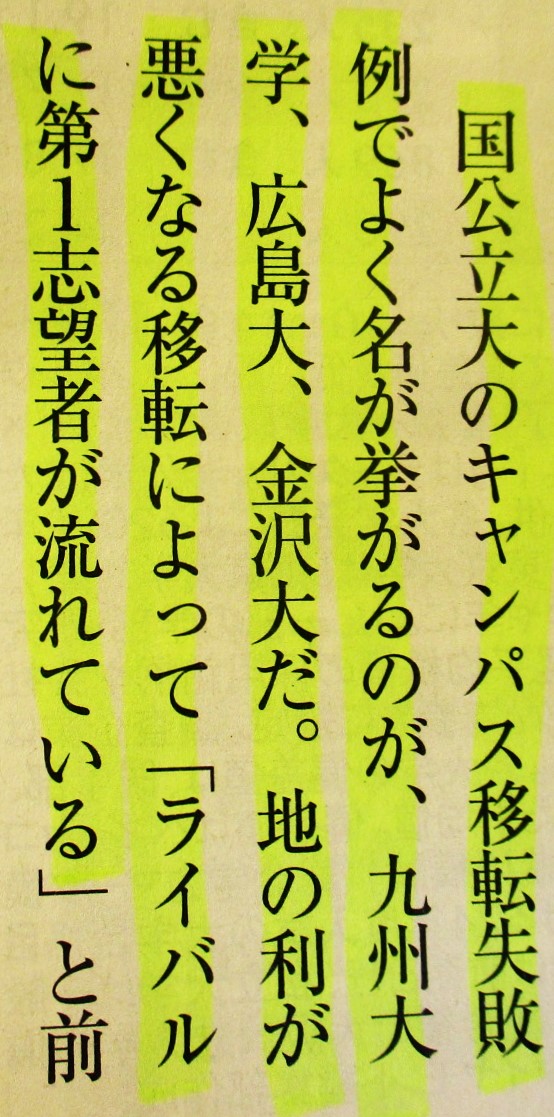 国公立大のキャンパス移転失敗
例でよく名が挙がるのが、九州大
学、広島大、金沢大だ。地の利が
悪くなる移転によって「ライバル
に第1志望者が流れている」と前